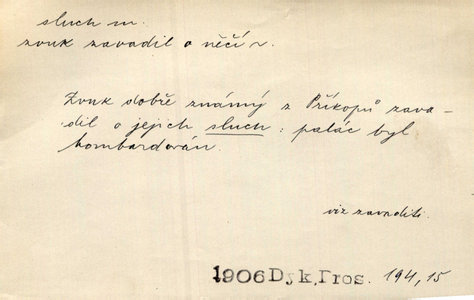 sluch m.
zvuk zavadil o něčí s.
Zvuk dobře známý z Příkopů zava-
dil o jejich sluch: palác byl
bombardován.
viz zavaditi.
1906 Dyk, Pros. 194, 15